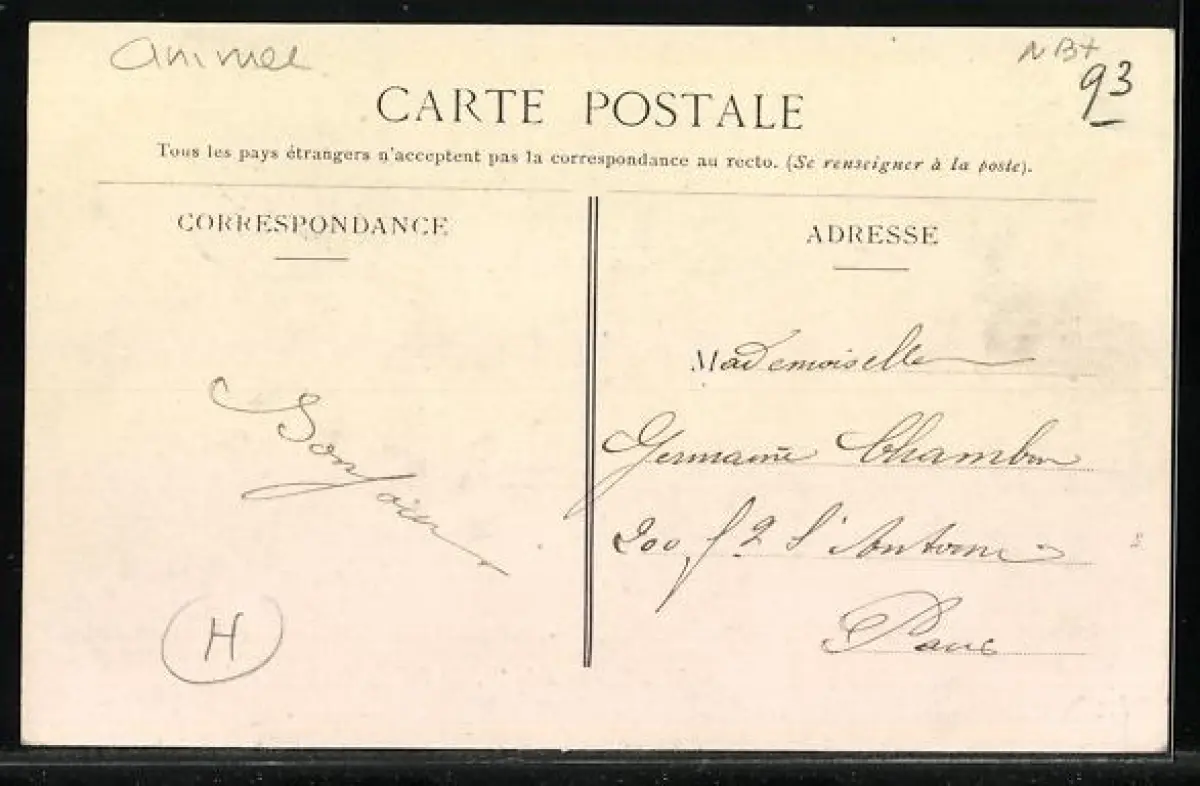 animee
NB+
93
CARTE POSTALE
Tous les pays étrangers n'acceptent pas la correspondance au recto. (Se renseigner à la poste).
CORRESPONDANCE
ADRESSE
Bonjour
H
Mademoiselle
Germaine Chambon
200, f g St Antoine
Paris